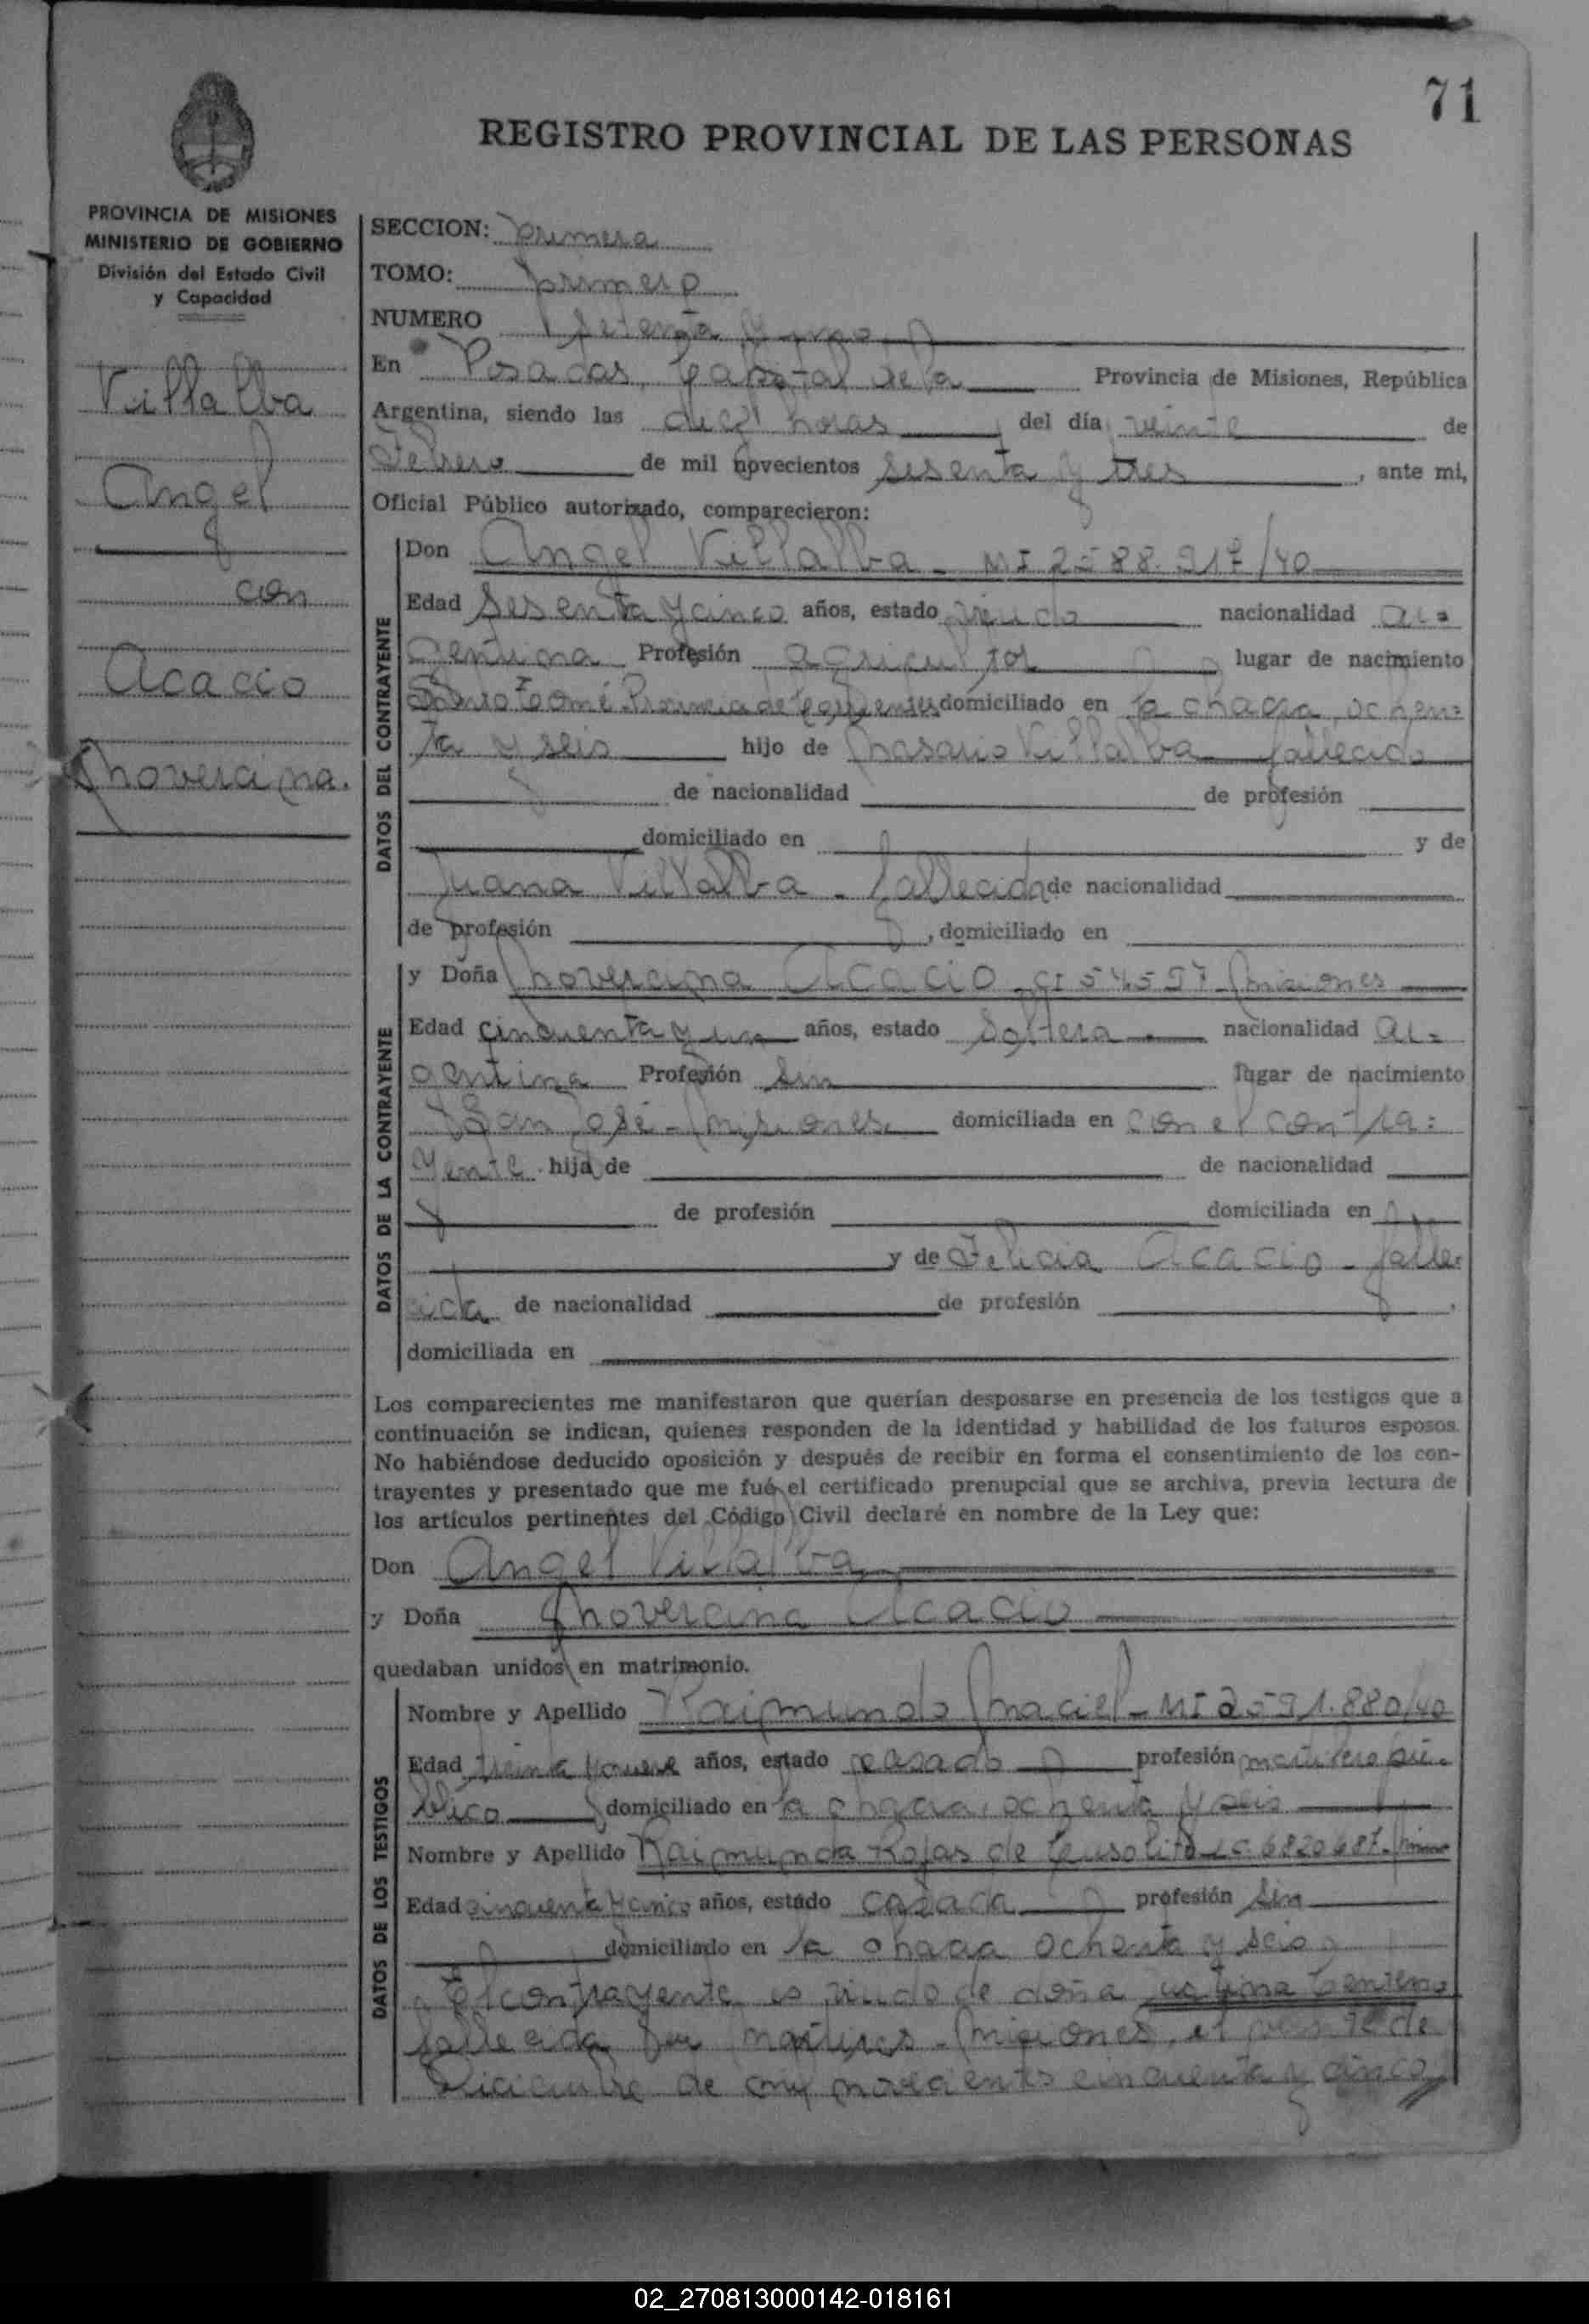 71
REGISTRO PROVINCIAL DE LAS PERSONAS
PROVINCIA DE MISIONES
MINISTERIO DE GOBIERNO
División del Estado Civil
y Capacidad
Villalba
Angel
con
Acacio
SECCION: primera
TOMO: primero
NUMERO setenta y uno
En Posadas, Capital de la Provincia de Misiones, República
Argentina, siendo las diez horas del día veinte de
Febrero de mil novecientos sesenta y tres, ante mi,
Oficial Público autorizado, comparecieron:
DATOS DEL CONTRAYENTE
Don Angel Villalba - MI 2588.917/40
Edad sesenta y cinco años, estado viudo nacionalidad ar=
gentina Profesión agricultor lugar de nacimiento
Santo Tomé Provincia de Corrientes domiciliado en la chacra ochen=
ta y seis hijo de Rosario Villalba fallecido
de nacionalidad de profesión
domiciliado en y de
Juana Villalba - fallecida de nacionalidad
de profesión , domiciliado en
DATOS DE LA CONTRAYENTE
y Doña Acacio CI 54597 Misiones
Edad cincuenta y un años, estado soltera nacionalidad ar=
gentina Profesión sin lugar de nacimiento
San José - Misiones domiciliada en con el contra=
yente hija de de nacionalidad
de profesión domiciliada en
y de Felicia Acacio - falle=
cida de nacionalidad de profesión
domiciliada en
Los comparecientes me manifestaron que querían desposarse en presencia de los testigos que a
continuación se indican, quienes responden de la identidad y habilidad de los futuros esposos.
No habiéndose deducido oposición y después de recibir en forma el consentimiento de los con-
trayentes y presentado que me fué el certificado prenupcial que se archiva, previa lectura de
los artículos pertinentes del Código Civil declaré en nombre de la Ley que:
Don Angel Villalba
y Doña Acacio
quedaban unidos en matrimonio.
DATOS DE LOS TESTIGOS
Nombre y Apellido Raimundo Maciel - MI 2591.880/40
Edad treinta y nueve años, estado casado profesión martillero pú=
blico domiciliado en la chacra ochenta y seis
Nombre y Apellido Raimunda Rojas de LC 6820687
Edad cincuenta y cinco años, estado casada profesión sin
domiciliado en la chacra ochenta y seis
El contrayente es viudo de doña
fallecida en Mártires - Misiones, el veinte de
Diciembre de mil novecientos cincuenta y cinco
02_270813000142-018161